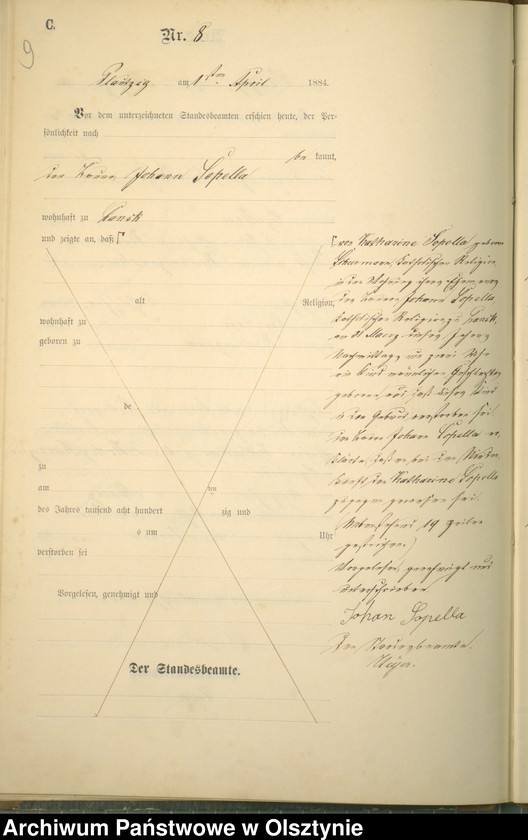 C.
9
Nr. 8
Plautzig am 1ten April 1884.
Vor dem unterzeichneten Standesbeamten erschien heute, der Per-
sönlichkeit nach
be kannt,
der Bauer Johann Sopella
wohnhaft zu Lansk
und zeigte an, daß
von Katharine Sopella geborene
katholischer Religion
in der Wohnung ihres Ehemannes
des Bauern Johann Sopella,
alt Religion,
katholischer Religion zu Lansk,
wohnhaft zu
am 31 Maerz dieses Jahres
geboren zu
Nachmittags um zwei Uhr
ein Kind männlichen Geschlechts
geboren und daß dieses Kind
de
in der Geburt verstorben sei.
Der Bauer Johann Sopella er-
klärte, daß er bei der Nieder-
zu
kunft der Katharine Sopella
am ten
zugegen gewesen sei.
des Jahres tausend acht hundert zig und
19 Zeilen
s um Uhr
gestrichen.
verstorben sei
Vorgelesen, genehmigt und
unterschrieben
Vorgelesen, genehmigt und
Johan Sopella
Der Standesbeamte.
Der Standesbeamte.
Archiwum Państwowe w Olsztynie